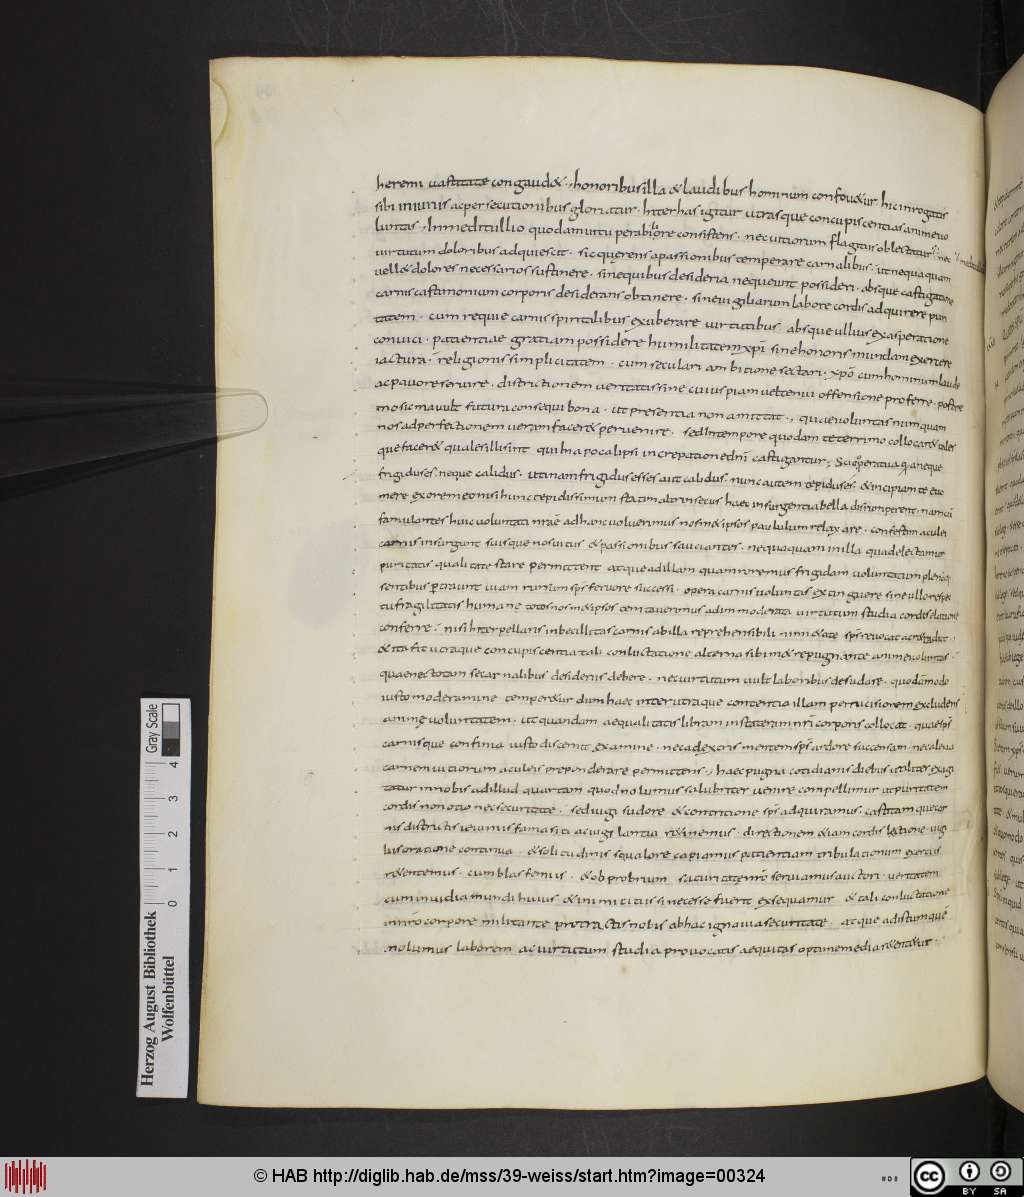 heremi uastitate congaud&. honoribus illa & laudibus hominum confou&ur hic inrogatis
sibi iniuriis ac persecutionibus gloriatur. Inter has igitur utrasque concupiscentias anime uo
luntas. In meditullio quodam uituperabiliore consistens. nec uitiorum flagitiis oblectatur. nec
uirtutum doloribus adquiescit. sic querens a passionibus temperare carnalibus. ut nequaquam
uell& dolores necessarios sustinere. sine quibus desideria nequeunt possideri. absque castigatione
carnis castimonium corporis desiderans obtinere. sine uigiliarum labore cordis adquirere puri
tatem. cum requie carnis spiritalibus exuberare uirtutibus. absque ullius exasperatione
conuici. patientiae gratiam possidere humilitatem xpi sine honoris mundani exercere
iactura. religionis simplicitatem. cum seculari ambitione sectari. xpo cum hominum laude
ac pauore seruire. districtionem ueritatis sine cuiuspiam uel tenui offensione proferre. postre
mo sic mauult futura consequi bona. ut presentia non amittat. quae uoluntas numquam
nos ad perfectionem ueram facer& peruenire. sed In tempore quodam teterrimo collocar& tales
que facer& quales illi sint qui In apocalipsi increpatione dni castigantur. Scio opera tua quia neque
frigidus es. neque calidus. utinam frigidus esses aut calidus. nunc autem tepidus es. & incipiam te euo
mere ex ore meo nisi hunc tepidissimum statum altrinsecus haec insurgentia bella disrumperent. nam cu
famulantes huic uoluntati nrae ad hanc uoluerimus nosm& ipsos paululum relaxare. confestim aculei
carnis insurgunt suisque nos uitiis & passionibus sauciantes. nequaquam in illa qua delectamur
puritatis qualitate stare permittent atque ad illam quam horremus frigidam uoluntatum plenaq;
sentibus pertraunt uiam rursum sps feruore successi. opera carnis uoluntas extinguere sine ullo respec
tu fragilitatis humane totos nosm& ipsos temtauerimus ad inmoderata uirtutum studia cordis elatione
conferre. nisi Interpellans inbecillitas carnis ab illa reprehensibili nimi&ate sps reuocat ac r&ardat.
& ita fit utraque concupiscentia tali conluctatione alterna sibim& repugnante anime uoluntas.
quae nec totam se carnalibus desideriis debere. nec uirtutum uult laboribus desudare. quodammodo
iusto moderamine temper&ur dum haec inter utraque contentio illam perniciosiorem excludens
anime uoluntatem. ut quandam aequalitatis libram in statera nri corporis collocat. quae sps
carnisque confinia iusto discernit examine. nec a dextris mentem sps ardore succensam. nec a leua
carnem uitiorum aculeis preponderare permittens. haec pugna cotidianis diebus utiliter exagi
tatur in nobis ad illud quartum quod nolumus salubriter uenire compellimur ut puritatem
cordis non otio nec securitate. sed iugi sudore & contritione sps adquiramus. castitam que car
nis districtis ieiuniis fame siti ac uigilantia r&inemus. directionem &iam cordis lectione. uigi
liis oratione continua. & solitudinis squalore capiamus patientiam tribulationum exerciis
r&entemus. cum blasfemiis. & obprobrium saturitate nro seruiamus auctori. ueritatem
cum inuidia mundi huius & inimicitiis si necesse fuerit exsequamur & tali conluctatione
in nro corpore militante protractis nobis ab hac ignauia securitate. atque ad istum quem
nolumus laborem ac uirtutum studia prouocatis aequitas optime media r&ent&ur.
Herzog August Bibliothek
Wolfenbüttel
0 1 2 3 4
Gray Scale
© HAB http://diglib.hab.de/mss/39-weiss/start.htm?image=00324
CC BY SA